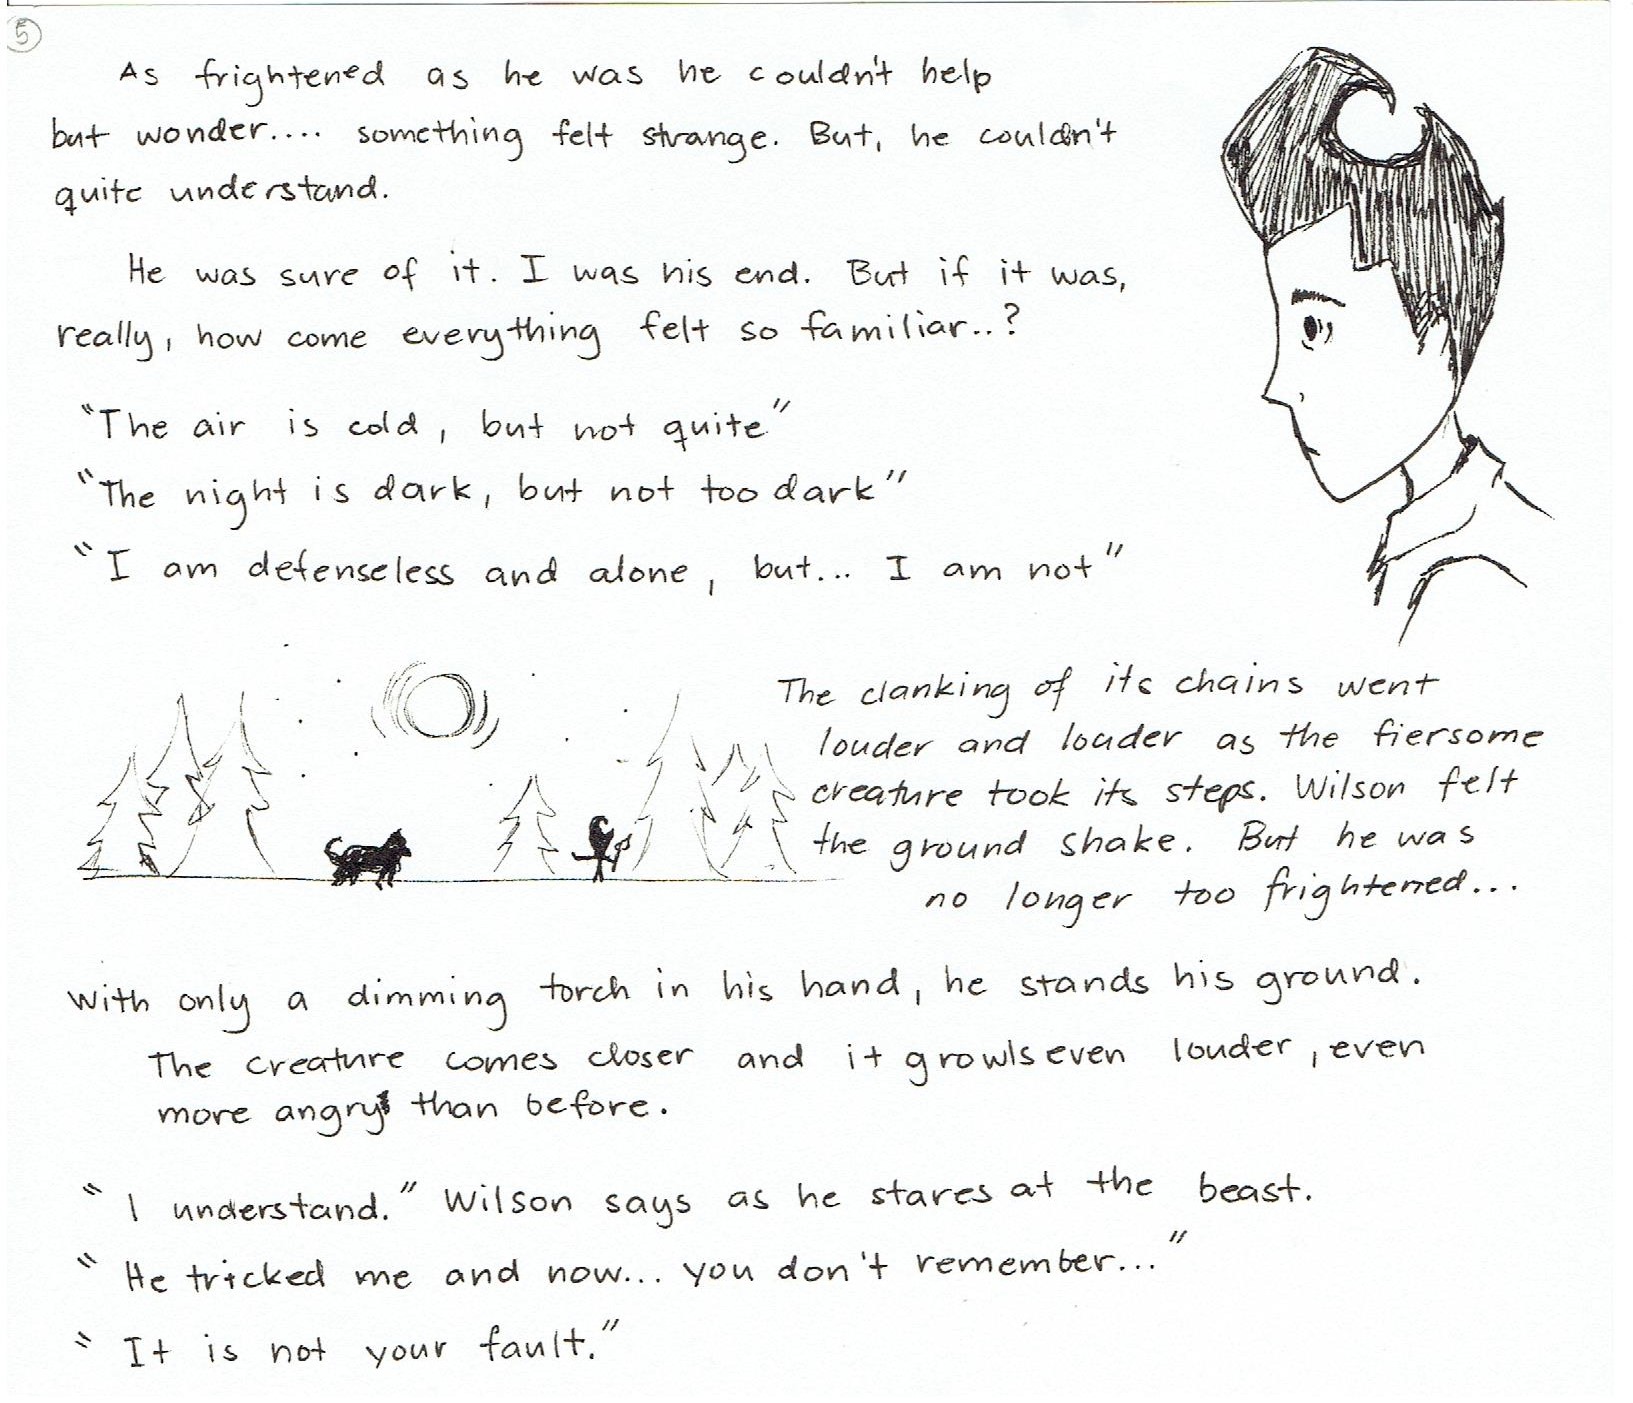 5
As frightened as he was he couldn't help
but wonder.... something felt strange. But, he couldn't
quite understand.
He was sure of it. I was his end. But if it was,
really, how come everything felt so familiar..?
"The air is cold, but not quite"
"The night is dark, but not too dark"
"I am defenseless and alone, but... I am not"
The clanking of its chains went
louder and louder as the fiersome
creature took its steps. Wilson felt
the ground shake. But he was
no longer too frightened...
With only a dimming torch in his hand, he stands his ground.
The creature comes closer and it growls even louder, even
more angry than before.
"I understand." Wilson says as he stares at the beast.
"He tricked me and now... you don't remember..."
"It is not your fault."